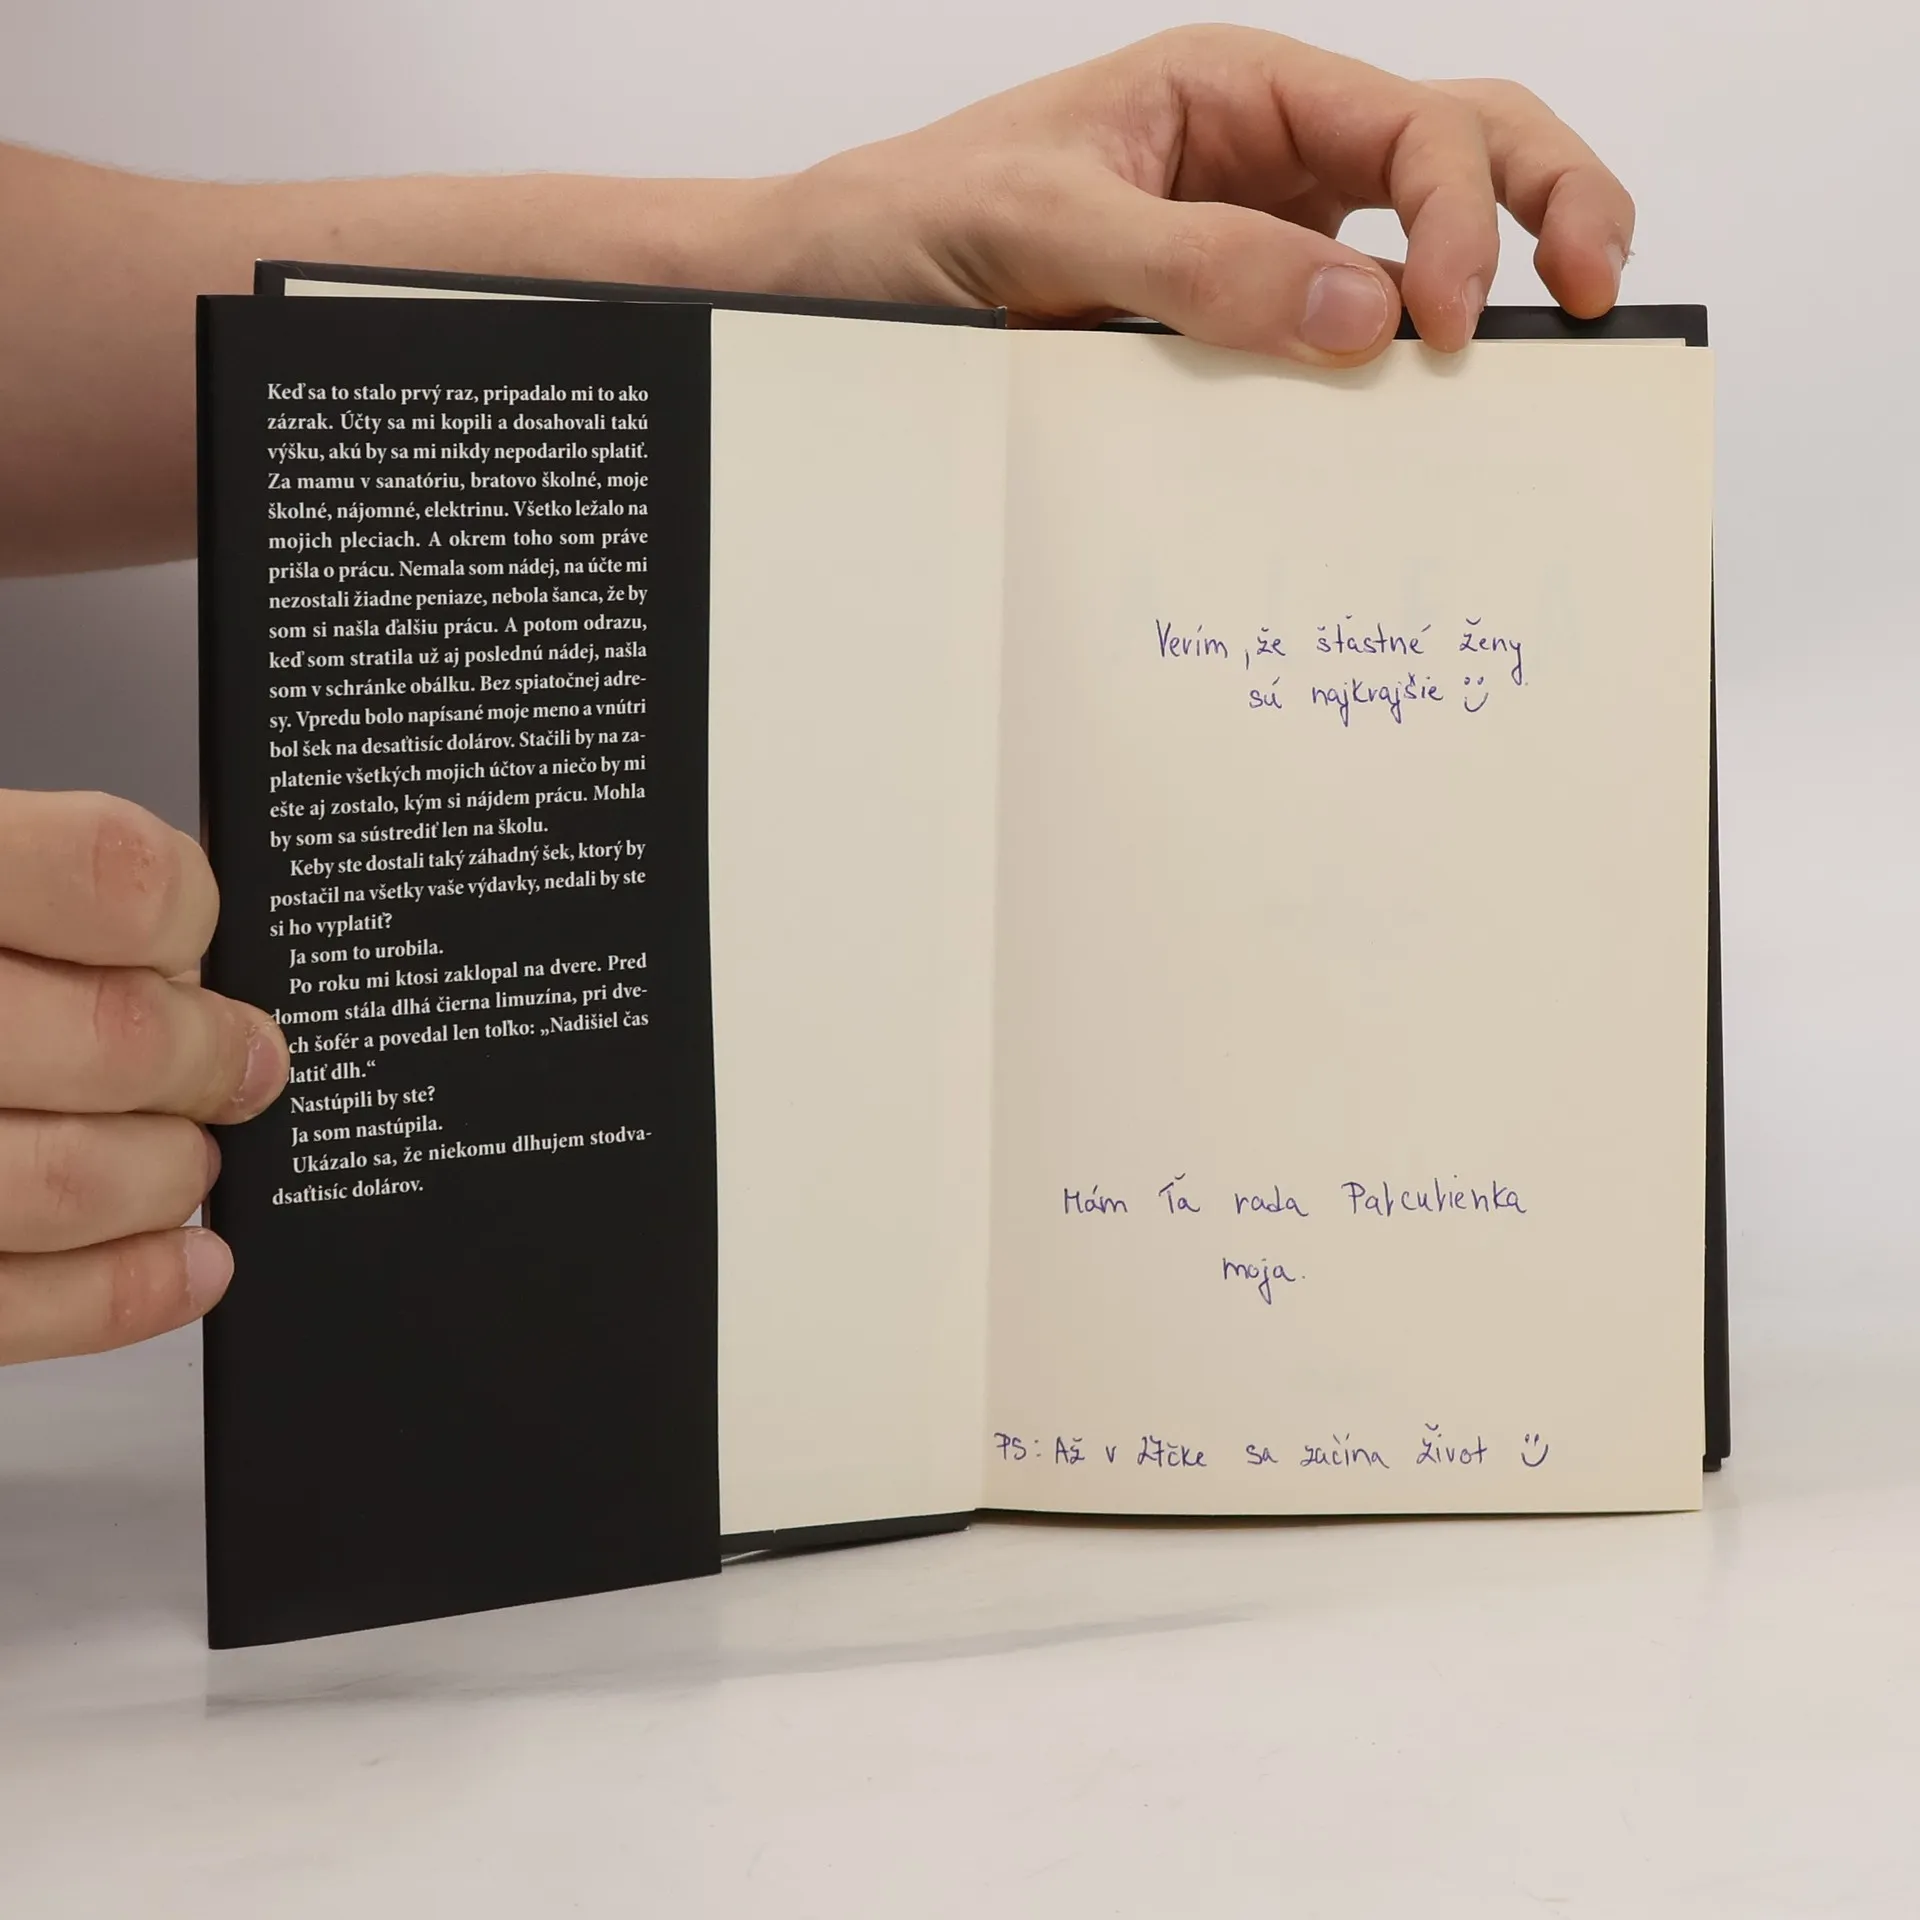 Keď sa to stalo prvý raz, pripadalo mi to ako
zázrak. Účty sa mi kopili a dosahovali takú
výšku, akú by sa mi nikdy nepodarilo splatiť.
Za mamu v sanatóriu, bratovo školné, moje
školné, nájomné, elektrinu. Všetko ležalo na
mojich pleciach. A okrem toho som práve
prišla o prácu. Nemala som nádej, na účte mi
nezostali žiadne peniaze, nebola šanca, že by
som si našla ďalšiu prácu. A potom odrazu,
keď som stratila už aj poslednú nádej, našla
som v schránke obálku. Bez spiatočnej adre-
sy. Vpredu bolo napísané moje meno a vnútri
bol šek na desaťtisíc dolárov. Stačili by na za-
platenie všetkých mojich účtov a niečo by mi
ešte aj zostalo, kým si nájdem prácu. Mohla
by som sa sústrediť len na školu.
Keby ste dostali taký záhadný šek, ktorý by
postačil na všetky vaše výdavky, nedali by ste
si ho vyplatiť?
Ja som to urobila.
Po roku mi ktosi zaklopal na dvere. Pred
domom stála dlhá čierna limuzína, pri dve-
ch šofér a povedal len toľko: „Nadišiel čas
latiť dlh.“
Nastúpili by ste?
Ja som nastúpila.
Ukázalo sa, že niekomu dlhujem stodva-
dsaťtisíc dolárov.
Verím, že šťastné ženy
sú najkrajšie
Mám Ťa rada
moja.
PS: Až v 27čke sa začína život